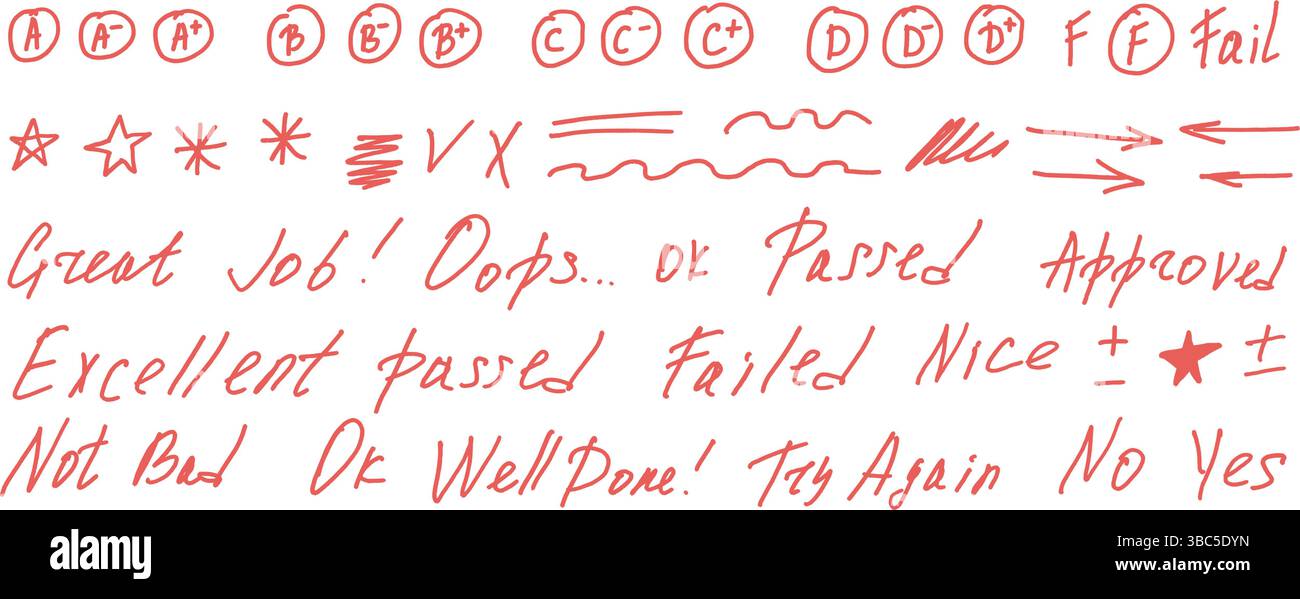 A A- A+ B B- B+ C C- C+ D D- D+ F F Fail
V X
Great Job! Oops... ok Passed Approved
Excellent passed Failed Nice + - ±
Not Bad Ok Well Done! Try Again No Yes
alamy
Image ID: 3BC5DYN
www.alamy.com